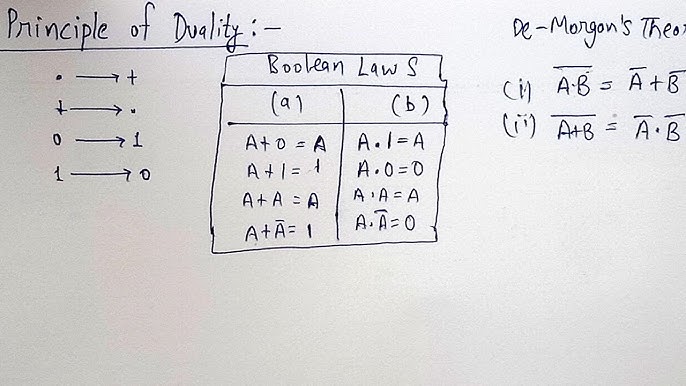 Principle of Duality :-
• ⟶ +
+ ⟶ •
0 ⟶ 1
1 ⟶ 0
Boolean Laws
(a) (b)
A+0=A A•1=A
A+1=1 A•0=0
A+A=A A•A=A
A+A̅=1 A•A̅=0
De-Morgan's Theor
(i) \overline{A•B} = A̅+B̅
(ii) \overline{A+B} = A̅•B̅